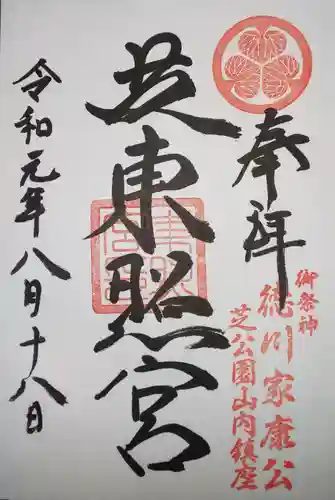 奉拝
御祭神
徳川家康公
芝公園山内鎮座
芝東照宮
令和元年八月十八日